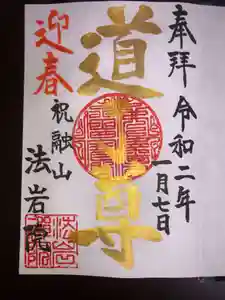 奉拝 令和二年
一月七日
道了尊
迎春
祝融山
法岩院